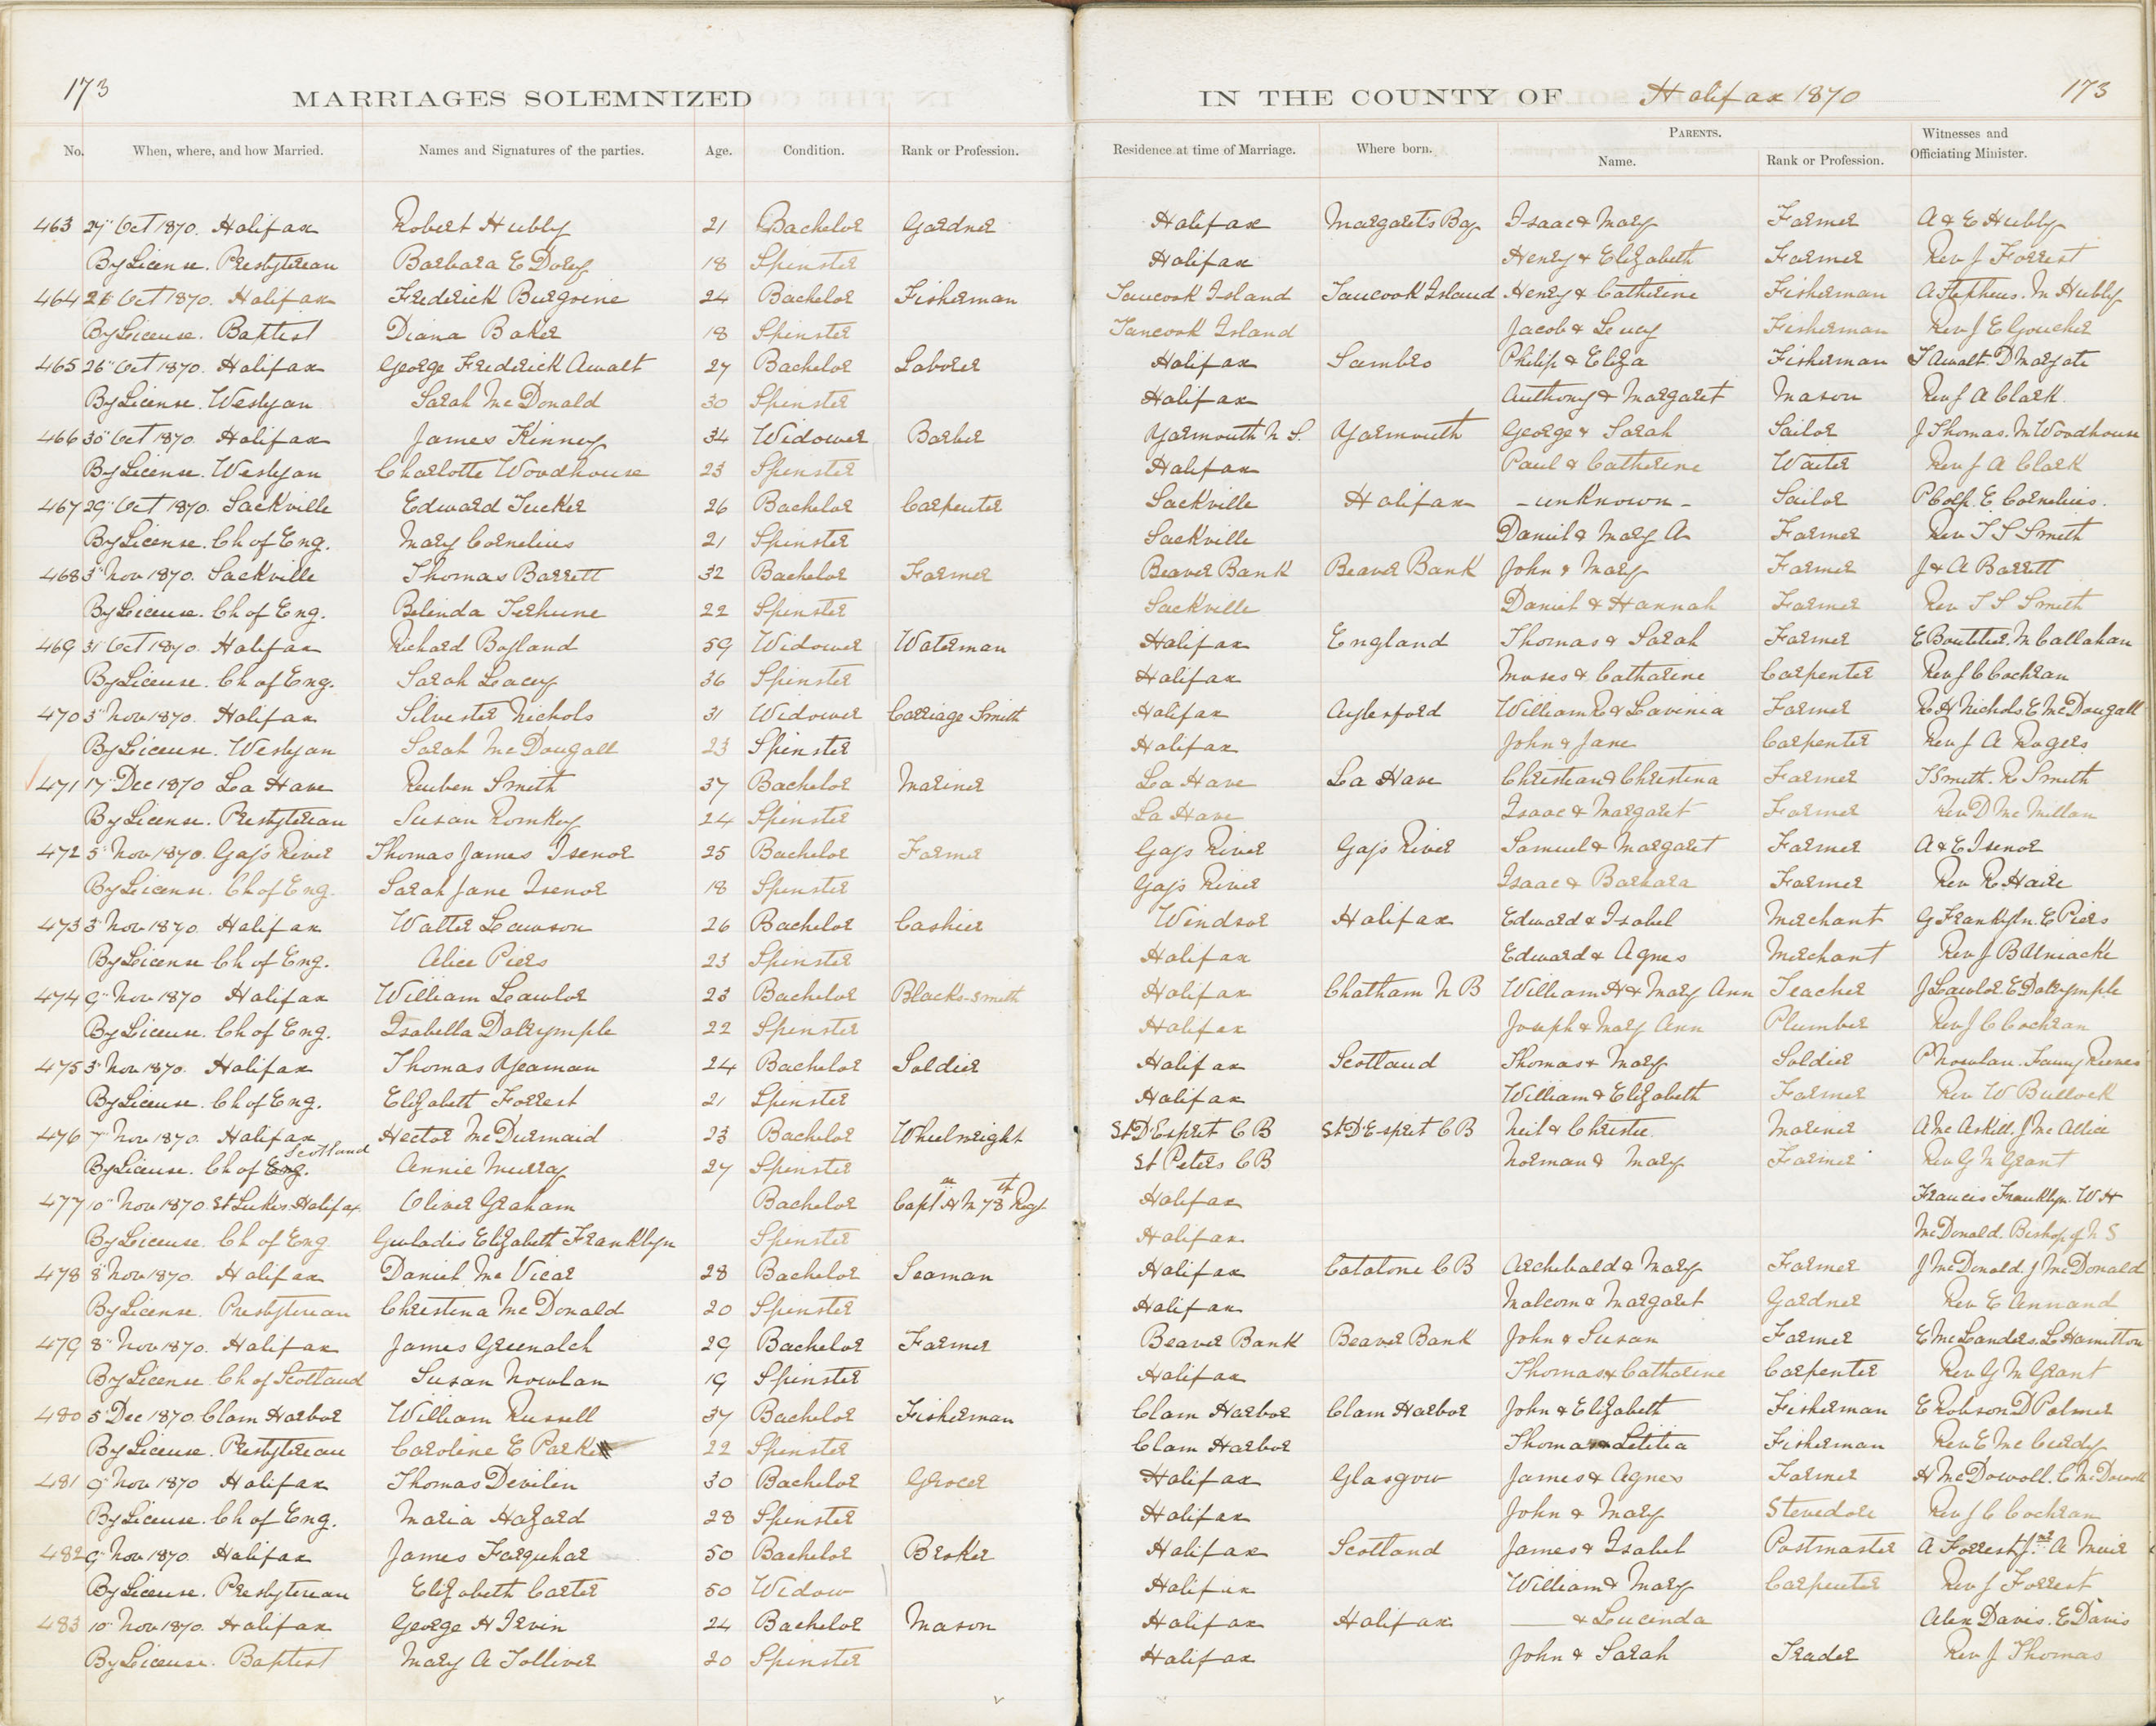 173 MARRIAGES SOLEMNIZED IN THE COUNTY OF Halifax 1870 173
No. When, where, and how Married. Names and Signatures of the parties. Age. Condition. Rank or Profession. Residence at time of Marriage. Where born. PARENTS. Name. Rank or Profession. Witnesses and Officiating Minister.
463 27" Oct 1870. Halifax Robert Hubly 21 Bachelor Gardner Halifax Margarets Bay Isaac & Mary Farmer A & E Hubly
By License. Presbyterian Barbara E Dorey 18 Spinster Halifax Henry & Elizabeth Farmer Rev J Forrest
464 Oct 1870. Halifax Frederick Burgoine 24 Bachelor Fisherman Tancook Island Tancook Island Henry & Catherine Fisherman A Stephens. M Hubly
By License. Baptist Diana Baker 18 Spinster Tancook Island Jacob & Lucy Fisherman Rev J E Goucher
465 26" Oct 1870. Halifax George Frederick Awalt 27 Bachelor Laborer Halifax Sambro Philip & Eliza Fisherman T Awalt. D Margate
By License. Weslyan Sarah McDonald 30 Spinster Halifax Anthony & Margaret Mason Rev J A Clark.
466 30" Oct 1870. Halifax James Kinney 34 Widower Barber Yarmouth N S. Yarmouth George & Sarah Sailor J Thomas. M Woodhouse
By License. Weslyan Charlotte Woodhouse 23 Spinster Halifax Paul & Catherine Waiter Rev J A Clark
467 29" Oct 1870. Sackville Edward Tucker 26 Bachelor Carpenter Sackville Halifax - unknown - Sailor E. Cornelius.
By License. Ch of Eng. Mary Cornelius 21 Spinster Sackville Daniel & Mary A Farmer Rev T S Smith
468 3" Nov 1870. Sackville Thomas Barrett 32 Bachelor Farmer Beaver Bank Beaver Bank John & Mary Farmer J & A Barrett
By License. Ch of Eng. Belinda Terhune 22 Spinster Sackville Daniel & Hannah Farmer Rev T S Smith
469 31" Oct 1870. Halifax Richard Boyland 59 Widower Waterman Halifax England Thomas & Sarah Farmer E Boutilier. M Callahan
By License. Ch of Eng. Sarah Lacey 36 Spinster Halifax Moses & Catharine Carpenter Rev J C Cochran
470 3" Nov 1870. Halifax Silvester Nichols 31 Widower Carriage Smith Halifax Aylesford William R & Lavinia Farmer R H Nichols E McDougall
By License. Weslyan Sarah McDougall 23 Spinster Halifax John & Jane Carpenter Rev J A Rogers
471 17" Dec 1870 La Have Reuben Smith 37 Bachelor Mariner La Have La Have Christian & Christina Farmer T Smith. R Smith
By License. Presbyterian Susan Romkey 24 Spinster La Have Isaac & Margaret Farmer Rev D McMillan
472 5" Nov 1870. Gays River Thomas James Isenor 25 Bachelor Farmer Gays River Gays River Samuel & Margaret Farmer A & E Isenor
By License. Ch of Eng. Sarah Jane Isenor 18 Spinster Gays River Isaac & Barbara Farmer Rev R Haire
473 3" Nov 1870. Halifax Walter Lawson 26 Bachelor Cashier Windsor Halifax Edward & Isabel Merchant G Franklyn. E Piers
By License Ch of Eng. Alice Piers 23 Spinster Halifax Edward & Agnes Merchant Rev J B Uniacke
474 9" Nov 1870 Halifax William Lawlor 23 Bachelor Blacks-smith Halifax Chatham N B William H & Mary Ann Teacher J Lawlor. E Dalrymple
By License. Ch of Eng. Isabella Dalrymple 22 Spinster Halifax Joseph & Mary Ann Plumber Rev J C Cochran
475 3" Nov 1870. Halifax Thomas Yeaman 24 Bachelor Soldier Halifax Scotland Thomas & Mary Soldier P Nowlan. Fanny Reeves
By License. Ch of Eng. Elizabeth Forrest 21 Spinster Halifax William & Elizabeth Farmer Rev W Bullock
476 7" Nov 1870. Halifax Hector McDermaid 23 Bachelor Wheelwright St D'Esprit C B St D'Esprit C B Neil & Christie. Mariner A McAskill. J McAllice
By License. Ch of Eng. Scotland Annie Murray 27 Spinster St Peters C B Norman & Mary Farmer Rev G M Grant
477 10" Nov 1870. St Lukes. Halifax Oliver Graham Bachelor Capt H M 78th Regt Halifax Francis Franklyn. W H
By License. Ch of Eng Gwladis Elizabeth Franklyn Spinster Halifax McDonald. Bishop of N S
478 8" Nov 1870. Halifax Daniel McVicar 28 Bachelor Seaman Halifax Catalone C B Archibald & Mary Farmer J McDonald. J McDonald
By License. Presbyterian Christina McDonald 20 Spinster Halifax Malcom & Margaret Gardner Rev E Annand
479 8" Nov 1870. Halifax James Greenalch 29 Bachelor Farmer Beaver Bank Beaver Bank John & Susan Farmer E McLanders. L Hamilton
By License Ch of Scotland Susan Nowlan 19 Spinster Halifax Thomas & Catharine Carpenter Rev G M Grant
480 5" Dec 1870. Clam Harbor William Russell 37 Bachelor Fisherman Clam Harbor Clam Harbor John & Elizabeth Fisherman E Robson D Palmer
By License. Presbyterian Caroline E Parker 22 Spinster Clam Harbor Thomas & Letitia Fisherman Rev E McCurdy
481 9" Nov 1870 Halifax Thomas Devilin 30 Bachelor Grocer Halifax Glasgow James & Agnes Farmer H McDowoll. C McDowoll
By License. Ch of Eng. Maria Hazard 28 Spinster Halifax John & Mary Stevedore Rev J C Cochran
482 9" Nov 1870. Halifax James Farquhar 50 Bachelor Broker Halifax Scotland James & Isabel Postmaster A Forrest Jnr A Muir
By License. Presbyterian Elizabeth Carter 50 Widow Halifax William & Mary Carpenter Rev J Forrest
483 10" Nov 1870. Halifax George H Irvin 24 Bachelor Mason Halifax Halifax — & Lucinda Alex Davis. E Davis
By License. Baptist Mary A Tolliver 20 Spinster Halifax John & Sarah Trader Rev J Thomas